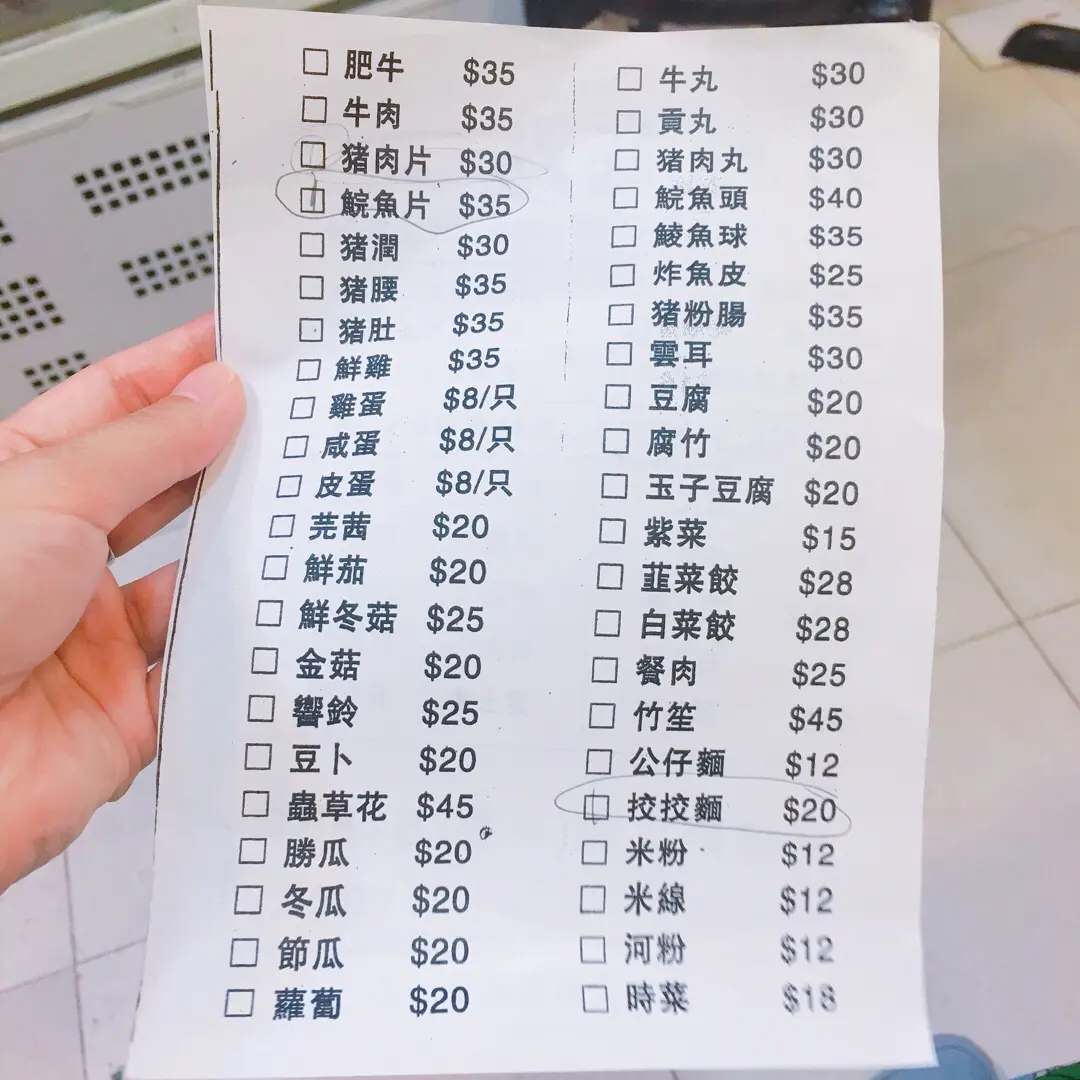 □ 肥牛 $35
□ 牛肉 $35
□ 猪肉片 $30
□ 鯇魚片 $35
□ 猪潤 $30
□ 猪腰 $35
□ 猪肚 $35
□ 鮮雞 $35
□ 雞蛋 $8/只
□ 咸蛋 $8/只
□ 皮蛋 $8/只
□ 芫茜 $20
□ 鮮茄 $20
□ 鮮冬菇 $25
□ 金菇 $20
□ 響鈴 $25
□ 豆卜 $20
□ 蟲草花 $45
□ 勝瓜 $20
□ 冬瓜 $20
□ 節瓜 $20
□ 蘿蔔 $20
□ 牛丸 $30
□ 貢丸 $30
□ 猪肉丸 $30
□ 鯇魚頭 $40
□ 鯪魚球 $35
□ 炸魚皮 $25
□ 猪粉腸 $35
□ 雲耳 $30
□ 豆腐 $20
□ 腐竹 $20
□ 玉子豆腐 $20
□ 紫菜 $15
□ 韮菜餃 $28
□ 白菜餃 $28
□ 餐肉 $25
□ 竹笙 $45
□ 公仔麵 $12
□ 挍挍麵 $20
□ 米粉 $12
□ 米線 $12
□ 河粉 $12
□ 時菜 $18